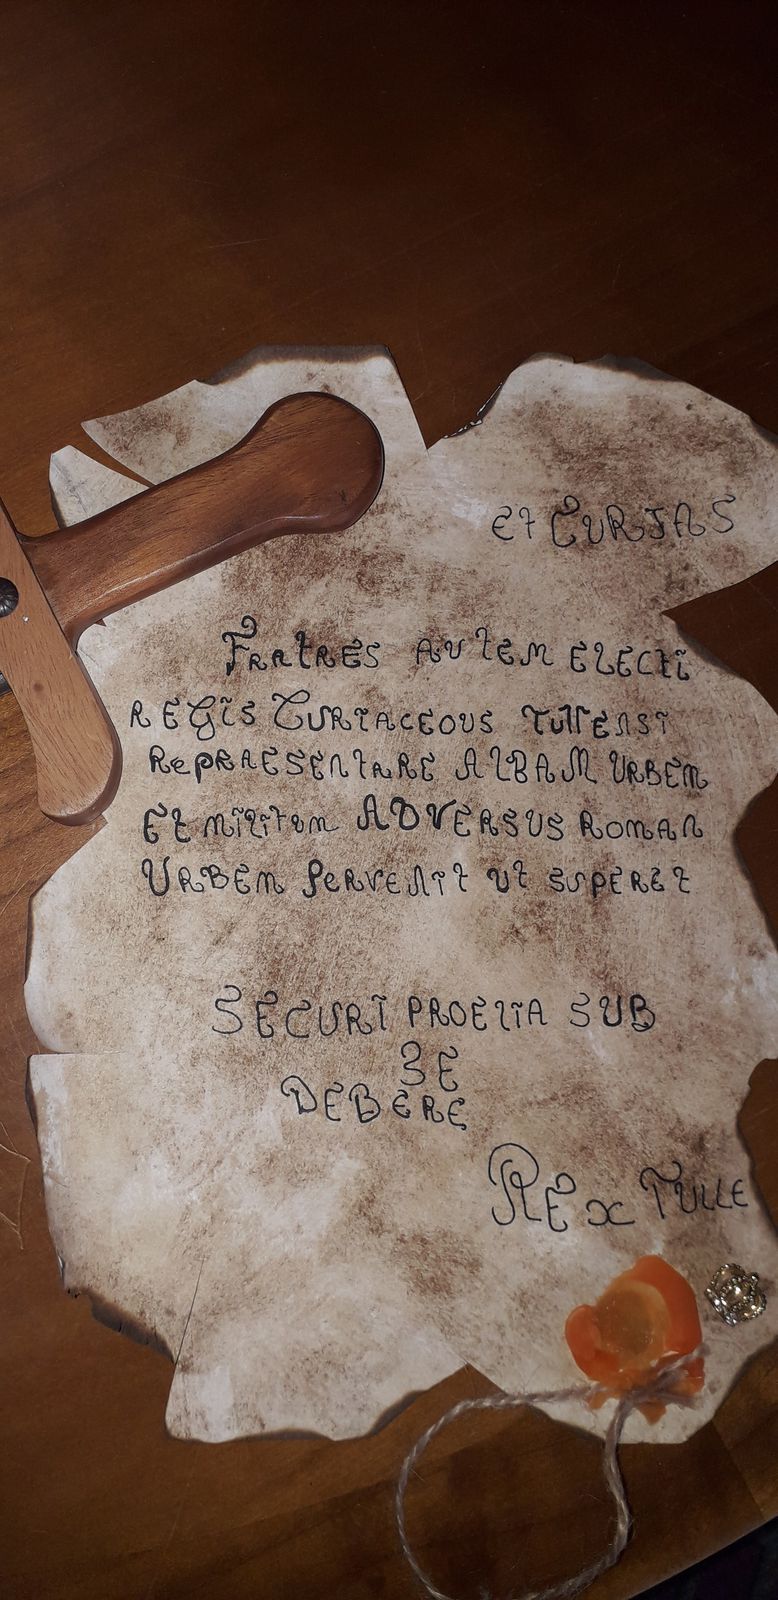 et CURJAS
FRATRES AUTEM ELECTI
REGIS CURIACEOUS TULLENSI
REPRAESENTARE ALBAM URBEM
ET militum ADVERSUS ROMAN
URBEM PERVENIT UT SUPERET
SECURI PROELIA SUB
SE
DEBERE
REX TULLE